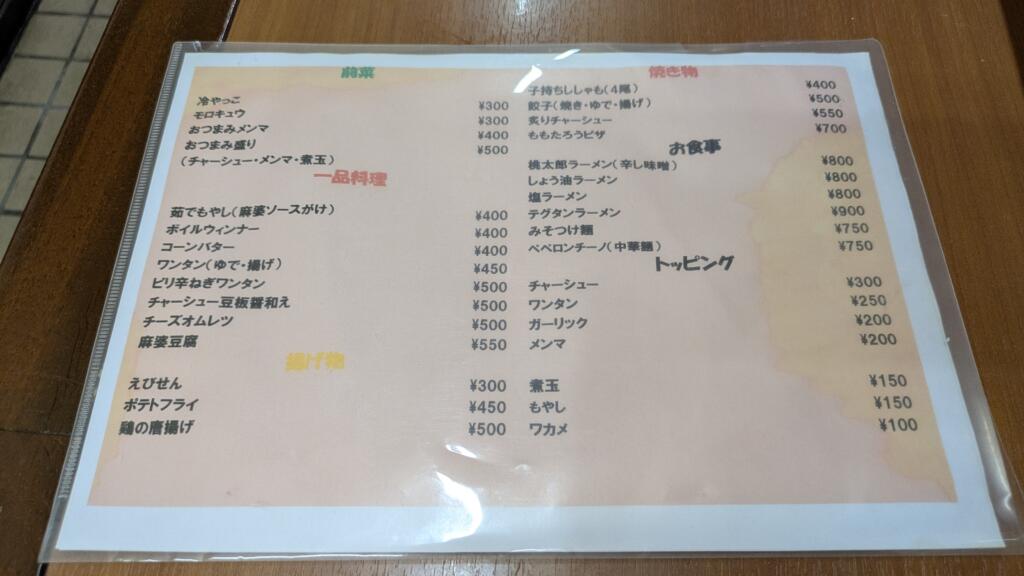 前菜
冷やっこ ¥300
モロキュウ ¥300
おつまみメンマ ¥400
おつまみ盛り ¥500
(チャーシュー・メンマ・煮玉)
一品料理
茹でもやし(麻婆ソースがけ) ¥400
ボイルウィンナー ¥400
コーンバター ¥400
ワンタン(ゆで・揚げ) ¥450
ピリ辛ねぎワンタン ¥500
チャーシュー豆板醤和え ¥500
チーズオムレツ ¥500
麻婆豆腐 ¥550
揚げ物
えびせん ¥300
ポテトフライ ¥450
鶏の唐揚げ ¥500
焼き物
子持ちししゃも(4尾) ¥400
餃子(焼き・ゆで・揚げ) ¥500
炙りチャーシュー ¥550
ももたろうピザ ¥700
お食事
桃太郎ラーメン(辛し味噌) ¥800
しょう油ラーメン ¥800
塩ラーメン ¥800
テグタンラーメン ¥900
みそつけ麺 ¥750
ペペロンチーノ(中華麺) ¥750
トッピング
チャーシュー ¥300
ワンタン ¥250
ガーリック ¥200
メンマ ¥200
煮玉 ¥150
もやし ¥150
ワカメ ¥100